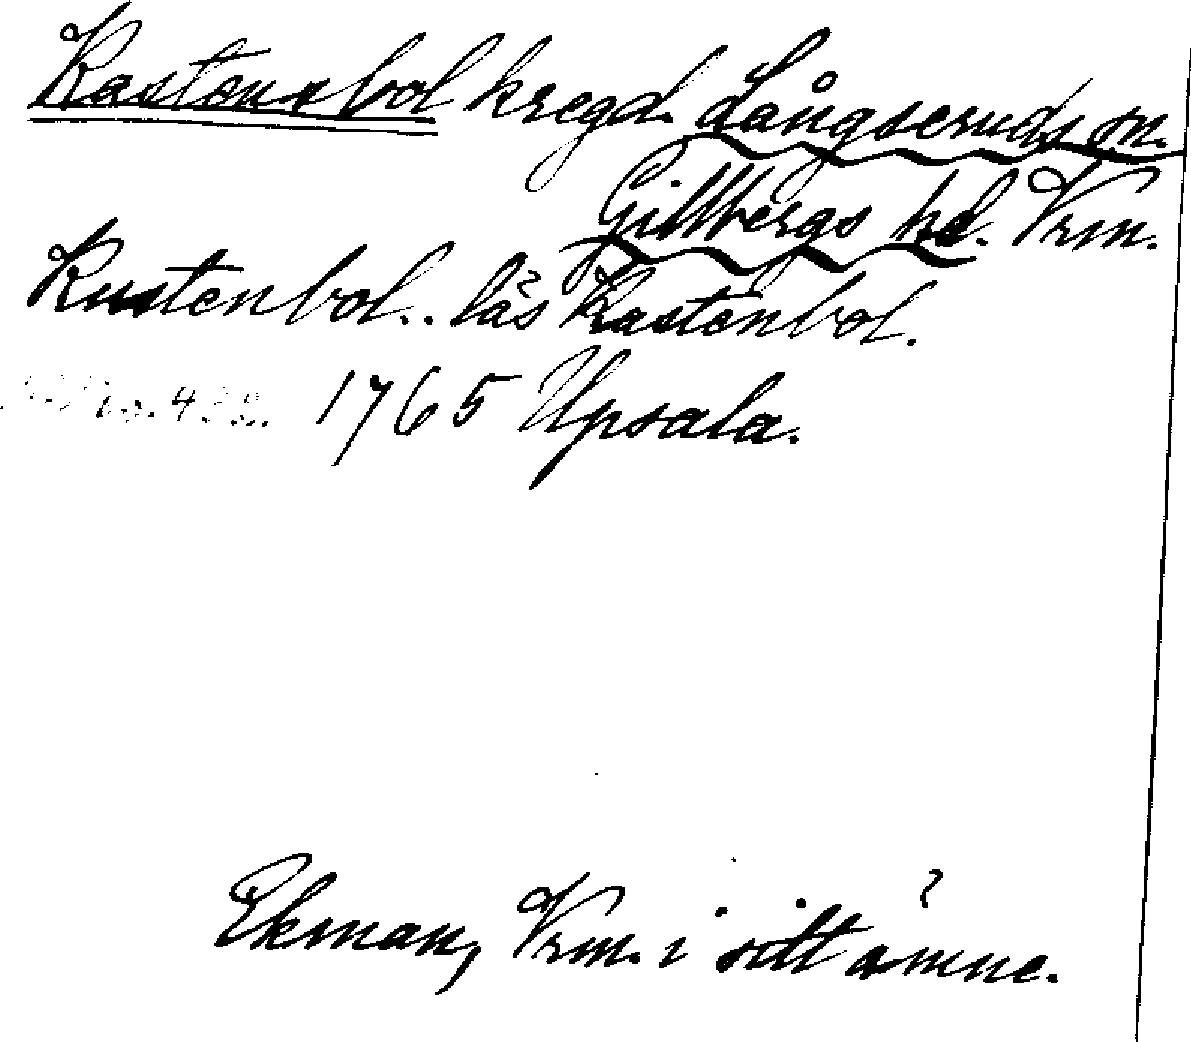 Kastensbol kregd. Långseruds sn.
Gillbergs hd. Vrm.
Kustenbol.. läs Kastenbol.
1765 Upsala.
Ekman, Vrm. i sitt ämne.